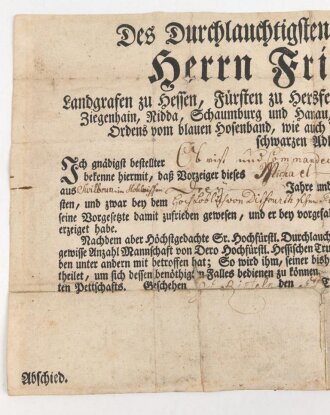 Des Durchlauchtigsten
Herrn Fri
Landgrafen zu Hessen, Fürsten zu Hersfe
Ziegenhain, Nidda, Schaumburg und Hanau,
Ordens vom blauen Hosenband, wie auch
schwarzen Adl
Ich gnädigst bestellter Obrist und Commande
bekenne hiermit, daß Vorzeiger dieses Michael
aus Jahre und
sten, und zwar bey dem
seine Vorgesetzte damit zufrieden gewesen, und er bey vorgefa
erzeiget habe.
Nachdem aber Höchstgedachte Sr. Hochfürstl. Durchlauch
gewisse Anzahl Mannschaft von Dero Hochfürstl. Hessischen Tru
ben unter andern mit betroffen hat; So wird ihm, seiner bish
theilet, um sich dessen benöthigten Falles bedienen zu können
ten Pettschafts. Geschehen den
Abschied.